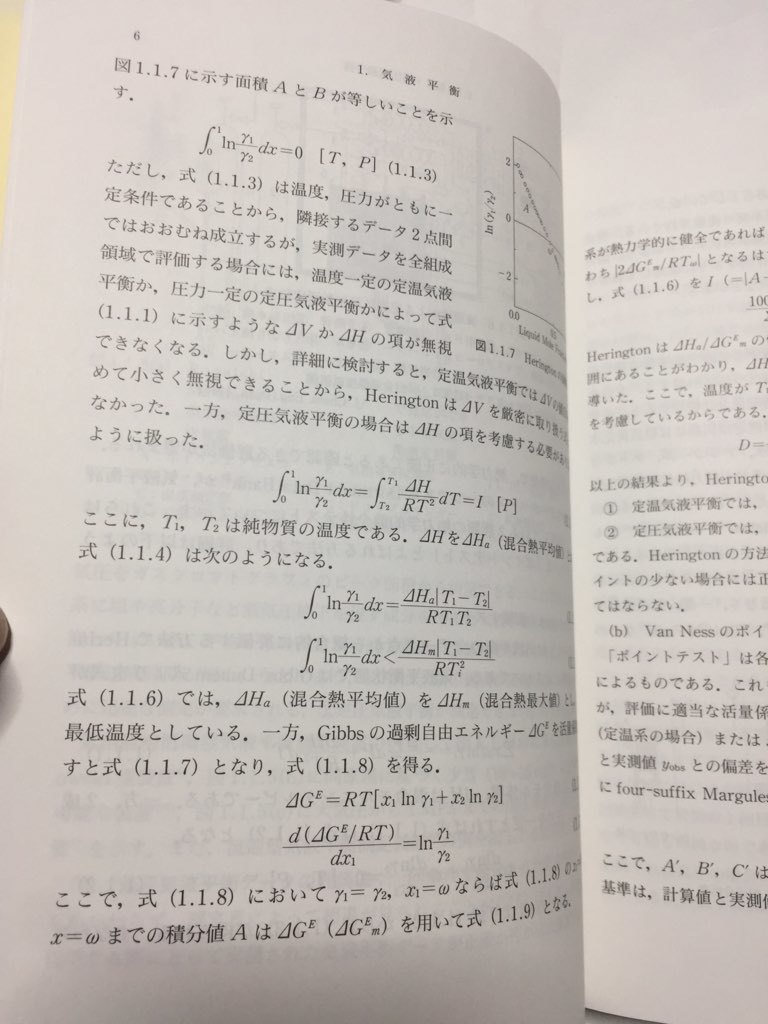 6
1. 気液平衡
図1.1.7に示す面積AとBが等しいことを示
す.
∫₀¹ ln(γ₁/γ₂)dx=0 [T, P] (1.1.3)
ただし, 式 (1.1.3) は温度, 圧力がともに一
定条件であることから, 隣接するデータ2点間
ではおおむね成立するが, 実測データを全組成
領域で評価する場合には, 温度一定の定温気液
平衡か, 圧力一定の定圧気液平衡かによって式
(1.1.1) に示すようなΔVかΔHの項が無視
できなくなる. しかし, 詳細に検討すると, 定温気液平衡ではΔVの
めて小さく無視できることから, HeringtonはΔVを厳密に取り扱
なかった. 一方, 定圧気液平衡の場合はΔHの項を考慮する必要が
ように扱った.
∫₀¹ ln(γ₁/γ₂)dx=∫_{T₂}^{T₁} (ΔH/RT²)dT=I [P]
ここに, T₁, T₂は純物質の温度である. ΔHをΔHₐ (混合熱平均値)
式 (1.1.4) は次のようになる.
∫₀¹ ln(γ₁/γ₂)dx=ΔHₐ|T₁−T₂|/RT₁T₂
∫₀¹ ln(γ₁/γ₂)dx<ΔHₘ|T₁−T₂|/RTᵢ²
式 (1.1.6) では, ΔHₐ (混合熱平均値) をΔHₘ (混合熱最大値) と
最低温度としている. 一方, Gibbsの過剰自由エネルギーΔGᴱを活量
すと式 (1.1.7) となり, 式 (1.1.8) を得る.
ΔGᴱ=RT[x₁ ln γ₁+x₂ ln γ₂]
d(ΔGᴱ/RT)/dx₁=ln(γ₁/γ₂)
ここで, 式 (1.1.8) においてγ₁=γ₂, x₁=ωならば式 (1.1.8) の
x=ωまでの積分値AはΔGᴱ (ΔGᴱₘ) を用いて式 (1.1.9) となる.
ln (γ₁/γ₂)
2
0
−2
A
0.0
0.5
Liquid Mole
図1.1.7 Herington
系が熱力学的に健全であれば
わち|2ΔGᴱₘ/RTω|となるは
し, 式 (1.1.6) をI (=|A−
100
HeringtonはΔHₐ/ΔGᴱₘの
囲にあることがわかり, ΔH
導いた. ここで, 温度がT
を考慮しているからである.
D=
以上の結果より, Heringto
① 定温気液平衡では,
② 定圧気液平衡では,
である. Heringtonの方法
イントの少ない場合には正
てはならない.
(b) Van Nessのポイ
「ポイントテスト」は各
によるものである. これ
が, 評価に適当な活量係
(定温系の場合) または
と実測値yobsとの偏差を
にfour-suffix Margules
ここで, A′, B′, C′は
基準は, 計算値と実測値